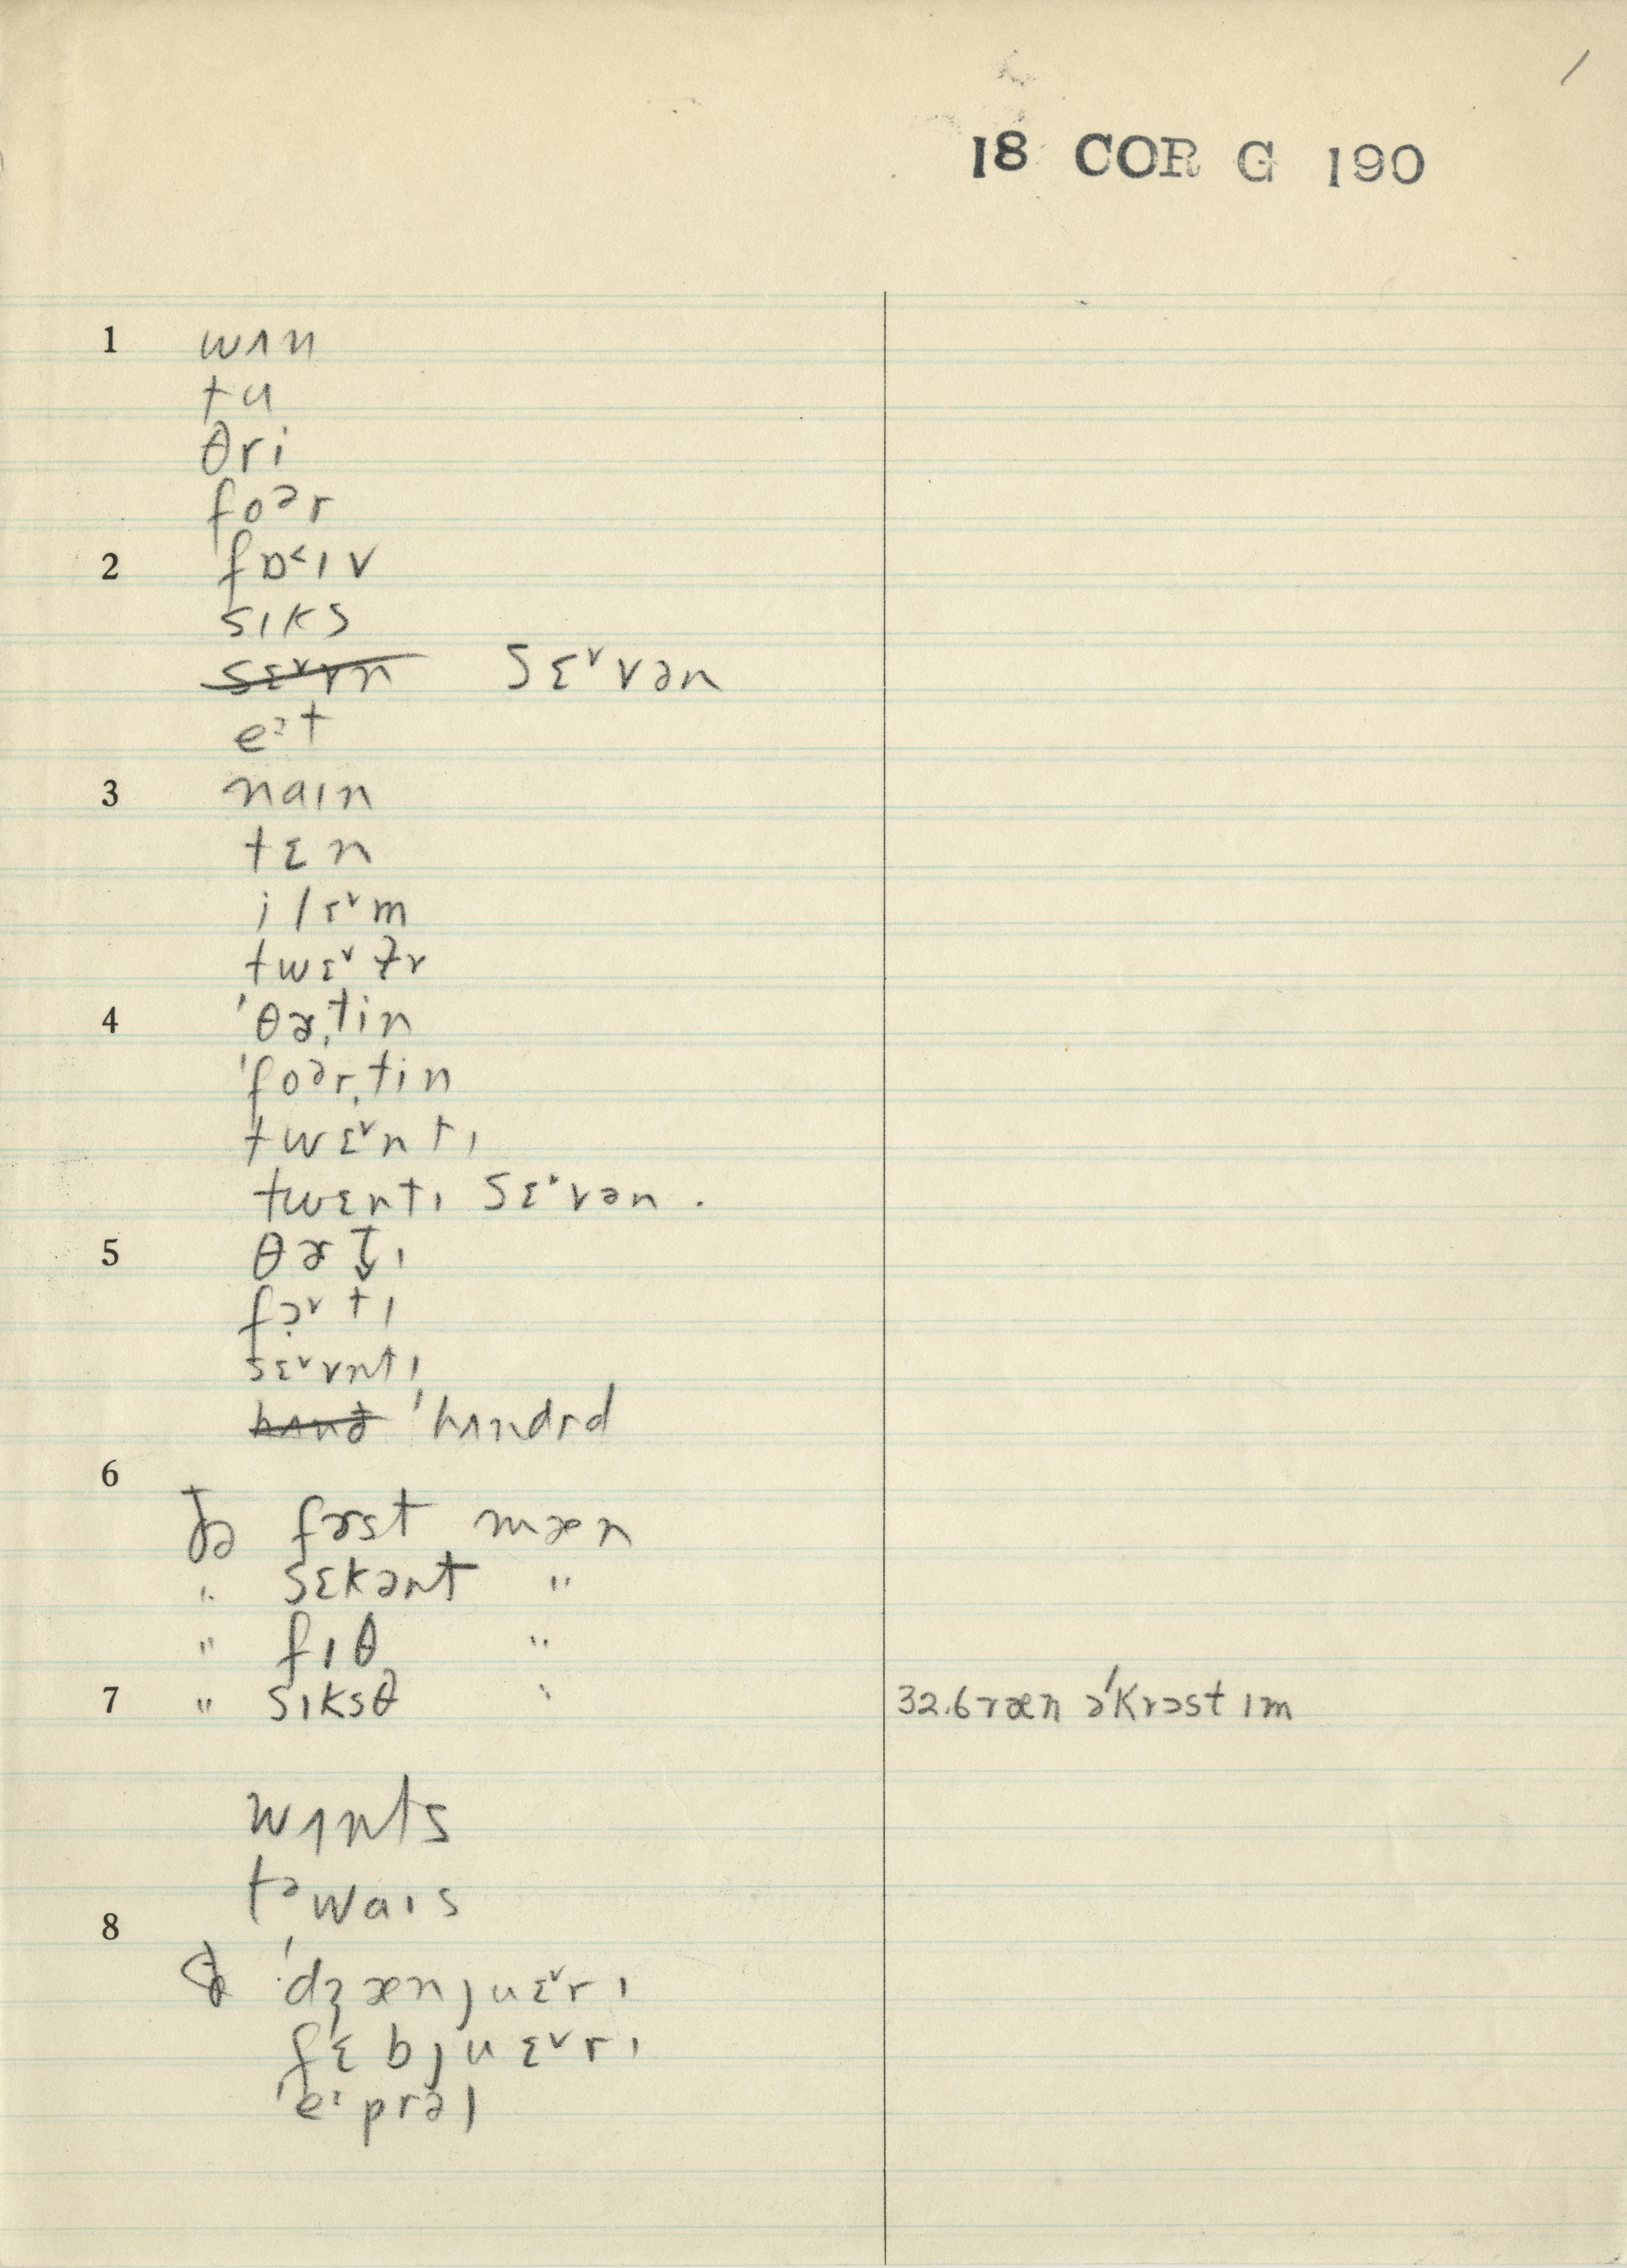 /
18 COR G 190
1 wʌn
tu
θri
foᵊr
2 fɒ˂ɪv
sɪks
s̶ɛ̶ᵛ̶v̶n̶ sɛᵛvən
eᶤt
3 naɪn
tɛn
twɛᵛ
4 ˈθɚˌtin
ˈfoᵊrˌtin
twɛᵛntɪ
twɛntɪ sɛᵛvən .
5 θɚt̬ɪ
sɛᵛvntɪ
h̶ʌ̶n̶d̶ ˈhʌndrd
6
ðə fɚst mæn
" sɛkənt "
" fɪθ "
7 " sɪksθ " 32.6 ræn əˈkrɔst ɪm
wʌnts
tᵊwaɪs
8
ˈdʒænjuɛᵛrɪ
fɛbjuɛᵛrɪ
ˈeᶤprəl